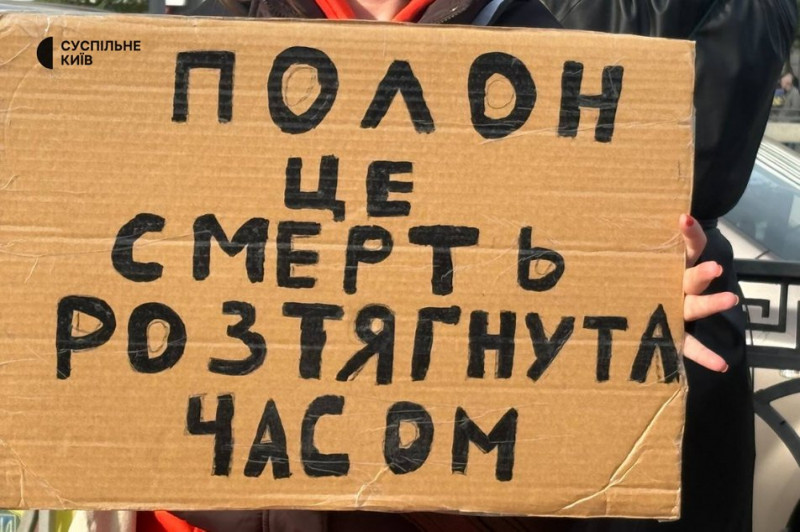 СУСПІЛЬНЕ
КИЇВ
ПОЛОН
ЦЕ
СМЕРТЬ
РОЗТЯГНУТА
ЧАСОМ